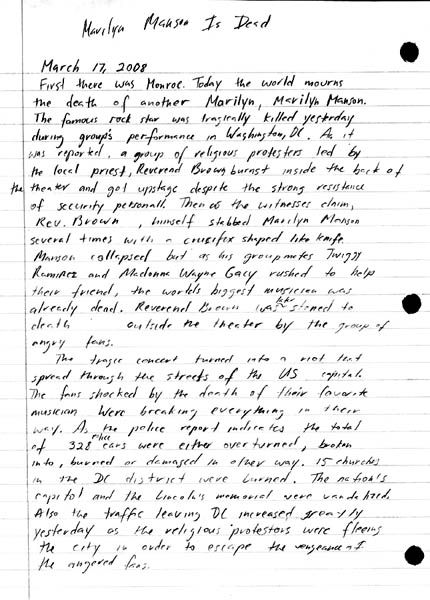 Marilyn Manson Is Dead
March 17, 2008
First there was Monroe. Today the world mourns
the death of another Marilyn, Marilyn Manson.
The famous rock star was tragically killed yesterday
during group's performance in Washington, DC. As it
was reported, a group of religious protesters led by
the local priest, Reverend Brown burst inside the back of
the theater and got upstage despite the strong resistance
of security personall. Then as the witnesses claim,
Rev. Brown himself stabbed Marilyn Manson
several times with a crusifix shaped like knife.
Manson collapsed but as his groupmates Twiggy
Ramirez and Madonna Wayne Gacy rushed to help
their friend, the worlds biggest musician was
already dead. Reverend Brown was later stoned to
death outside the theater by the group of
angry fans.
The tragic concert turned into a riot that
spread through the streets of the US capital.
The fans shocked by the death of their favorite
musician were breaking everything in their
way. As the police report indicates the total
of 328 police cars were either overturned, broken
into, burned or damaged in other way. 15 churches
in the DC district were burned. The nation's
capitol and the Lincoln's memorial were vandalized.
Also the traffic leaving DC increased greatly
yesterday as the religious protestors were fleeing
the city in order to escape the vengeance of
the angered fans.